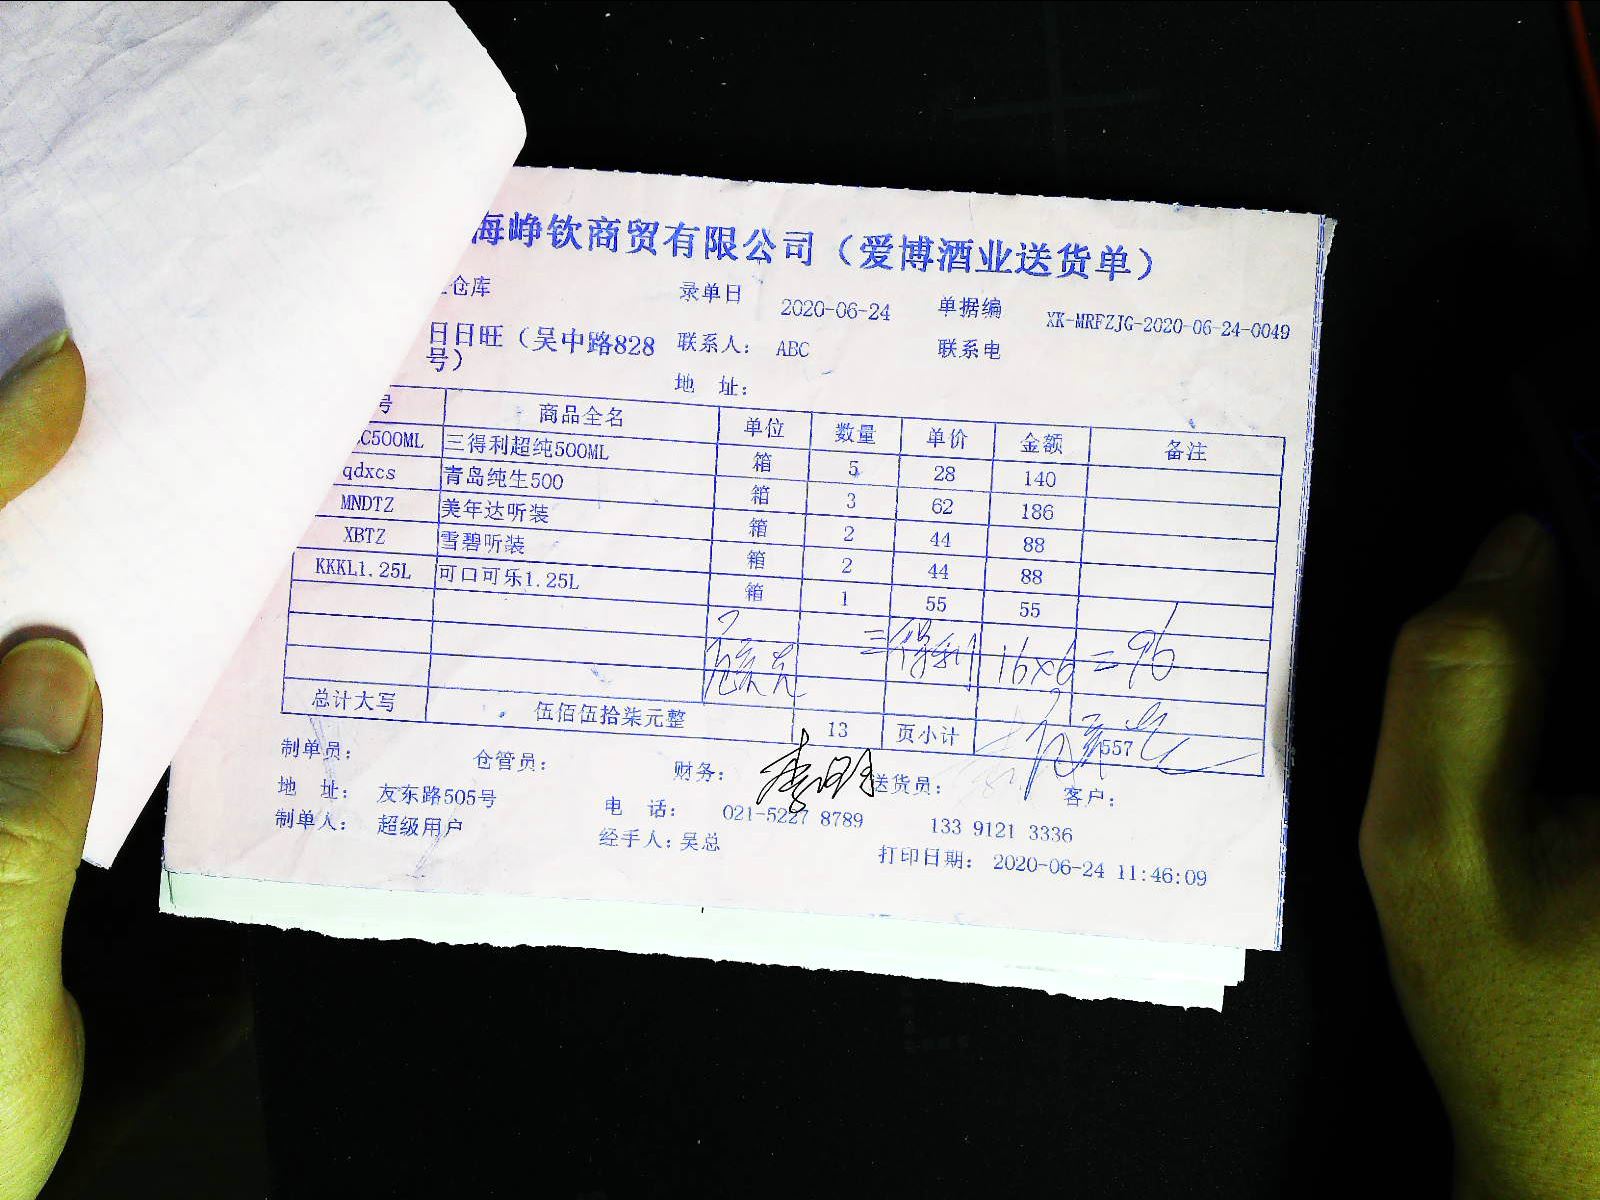 海峥钦商贸有限公司（爱博酒业送货单）
仓库 录单日 2020-06-24 单据编 XK-MRFZJG-2020-06-24-0049
日日旺（吴中路828号） 联系人： ABC 联系电
地 址：
号 商品全名 单位 数量 单价 金额 备注
C500ML 三得利超纯500ML 箱 5 28 140
qdxcs 青岛纯生500 箱 3 62 186
MNDTZ 美年达听装 箱 2 44 88
XBTZ 雪碧听装 箱 2 44 88
KKKL1.25L 可口可乐1.25L 箱 1 55 55
三得利 16x6=96
总计大写 伍佰伍拾柒元整 13 页小计 557
制单员： 仓管员： 财务： 送货员： 客户：
地 址： 友东路505号 电 话： 021-5227 8789 133 9121 3336
制单人： 超级用户 经手人：吴总 打印日期： 2020-06-24 11:46:09